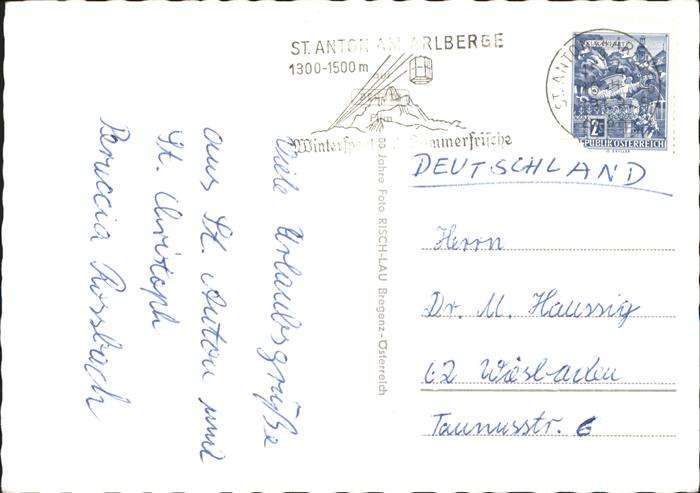 ST. ANTON AM ARLBERGE
1300-1500 m
Wintersport Sommerfrische
ST. ANTON
2
REPUBLIK ÖSTERREICH
DEUTSCHLAND
Herrn
Dr. M. Haussig
62 Wiesbaden
Taunusstr. 6
Jahre Foto RISCH-LAU Bregenz-Österreich
Viele Urlaubsgrüße
aus St. Anton und
St. Christoph
Rossbach